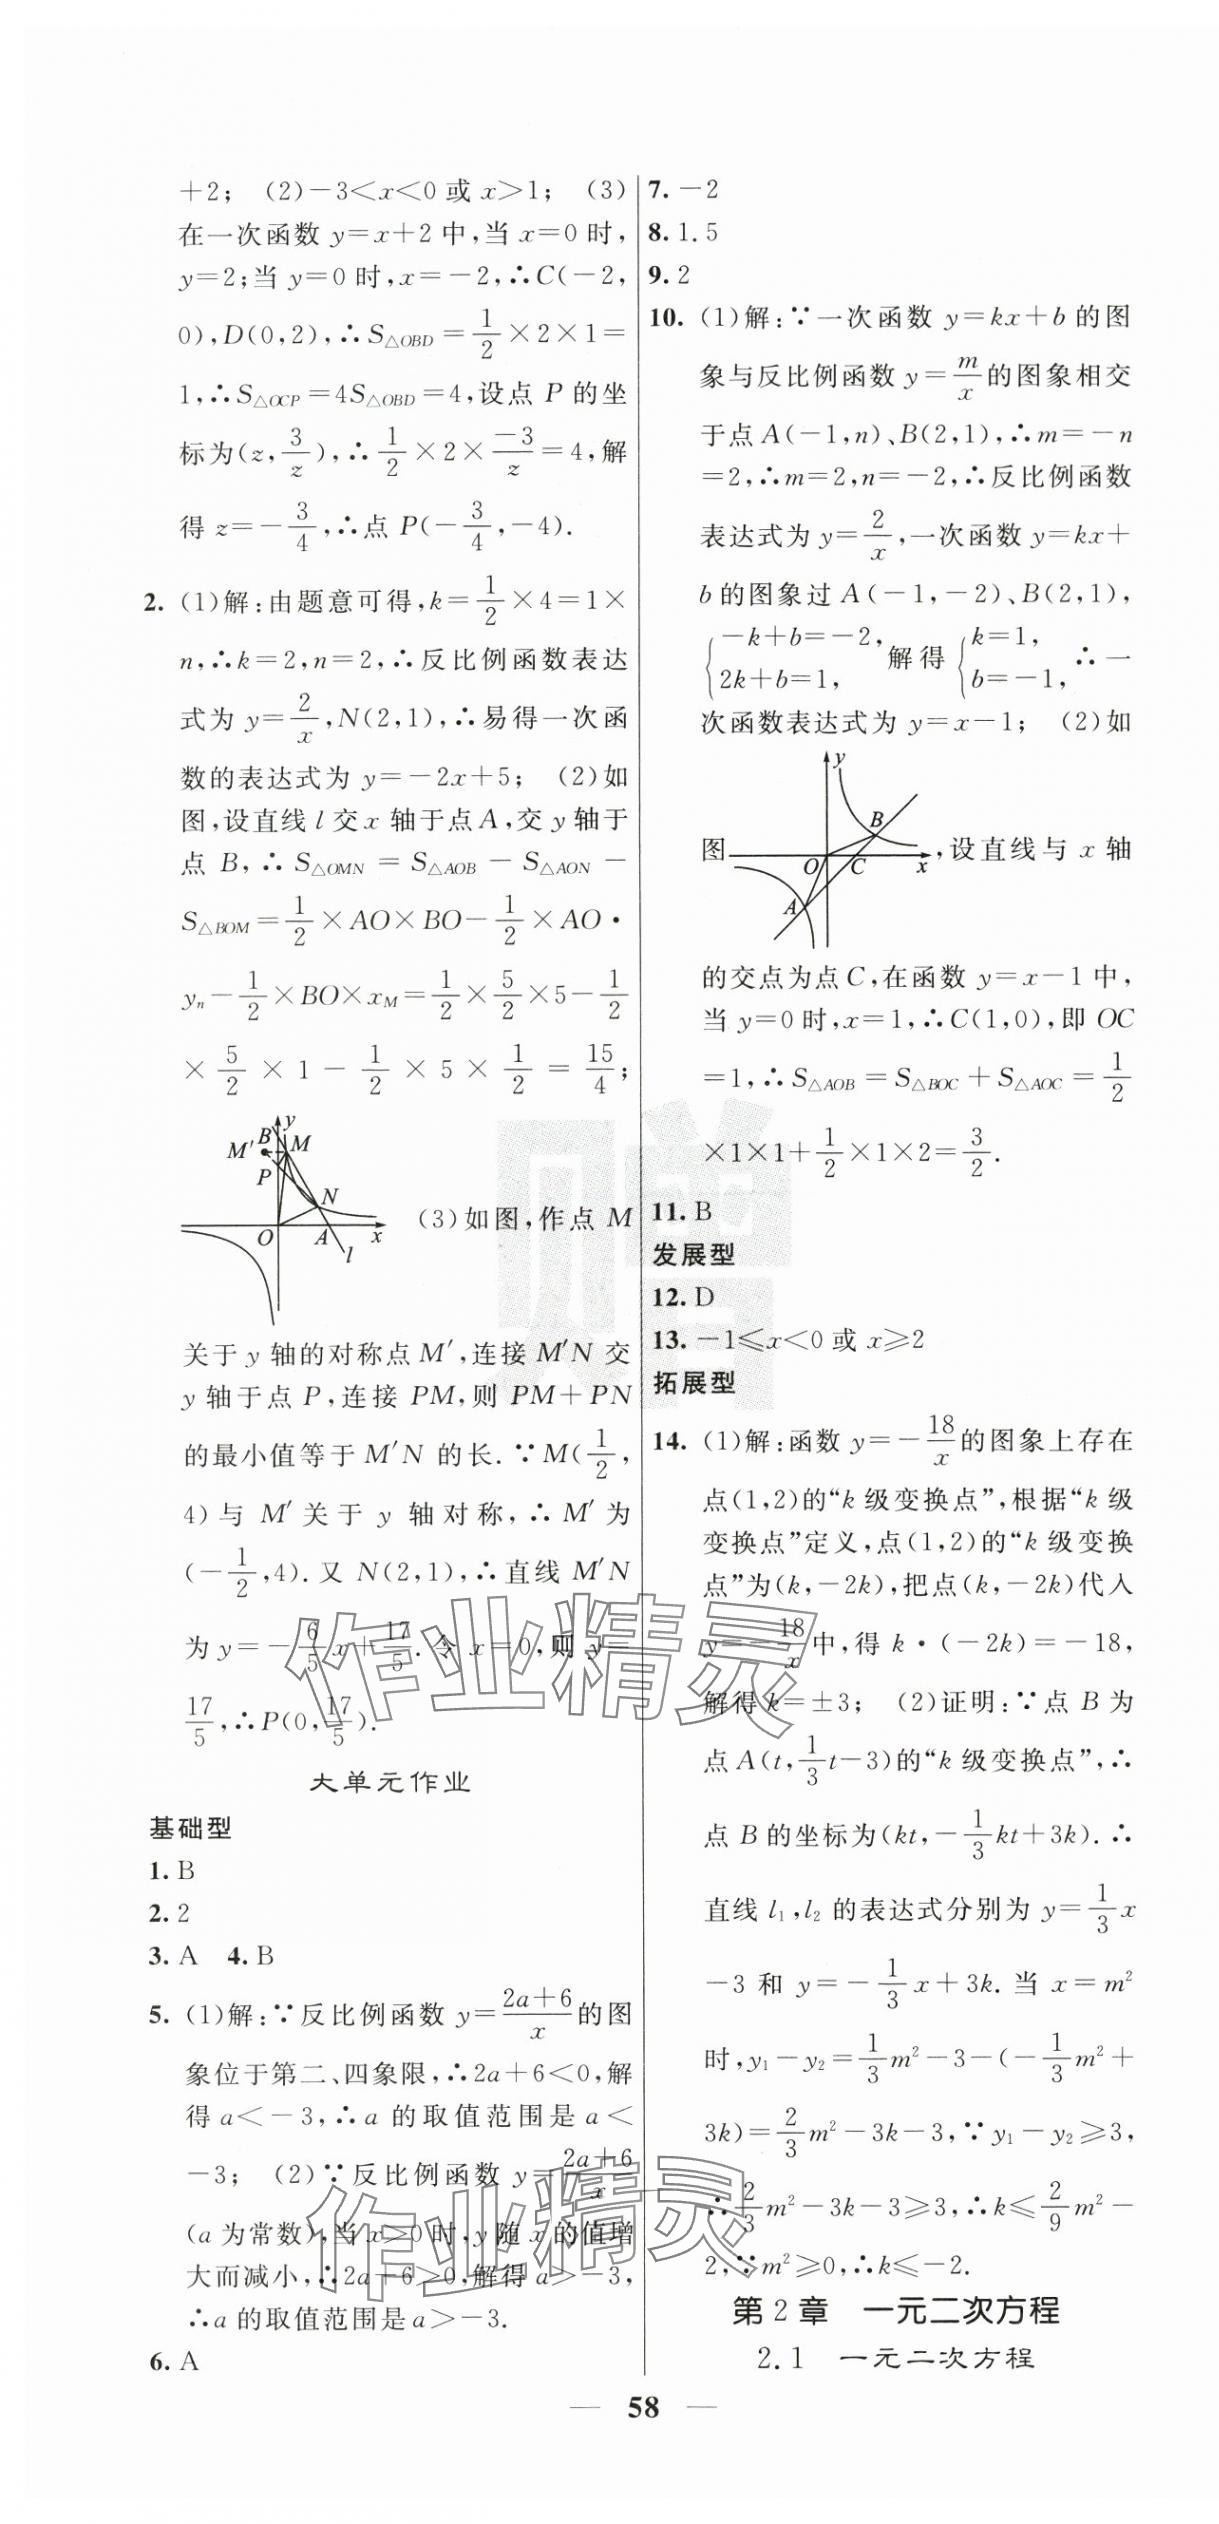 +2； (2)-3<x<0 或 x>1； (3)
在一次函数 y=x+2 中,当 x=0 时,
y=2;当 y=0 时,x=-2,∴C(-2,
0),D(0,2),∴S△OBD=1/2×2×1=
1,∴S△OCP=4S△OBD=4,设点 P 的坐
标为(z,3/z),∴1/2×2×-3/z=4,解
得 z=-3/4,∴点 P(-3/4,-4).
2. (1)解:由题意可得,k=1/2×4=1×
n,∴k=2,n=2,∴反比例函数表达
式为 y=2/x,N(2,1),∴易得一次函
数的表达式为 y=-2x+5； (2)如
图,设直线 l 交 x 轴于点A,交 y 轴于
点 B,∴S△OMN=S△AOB-S△AON-
S△BOM=1/2×AO×BO-1/2×AO·
yn-1/2×BO×xM=1/2×5/2×5-1/2
×5/2×1-1/2×5×1/2=15/4；
y
B
M′
M
P
N
O
A
x
l
(3)如图,作点 M
关于 y 轴的对称点 M′,连接 M′N 交
y 轴于点 P,连接 PM,则 PM+PN
的最小值等于 M′N 的长.∵M(1/2,
4)与 M′关于 y 轴对称,∴M′为
(-1/2,4).又 N(2,1),∴直线 M′N
为 y=-6/5x+17/5.令 x=0,则 y=
17/5,∴P(0,17/5).
大单元作业
基础型
1. B
2. 2
3. A 4. B
5. (1)解:∵反比例函数 y=2a+6/x的图
象位于第二、四象限,∴2a+6<0,解
得 a<-3,∴a 的取值范围是 a<
-3； (2)∵反比例函数 y=2a+6/x
(a 为常数),当 x>0 时,y 随 x 的值增
大而减小,∴2a+6>0,解得 a>-3,
∴a 的取值范围是 a>-3.
6. A
7. -2
8. 1.5
9. 2
10. (1)解:∵一次函数 y=kx+b 的图
象与反比例函数 y=m/x的图象相交
于点 A(-1,n)、B(2,1),∴m=-n
=2,∴m=2,n=-2,∴反比例函数
表达式为 y=2/x,一次函数 y=kx+
b 的图象过 A(-1,-2)、B(2,1),
{-k+b=-2, 2k+b=1, 解得{k=1, b=-1, ∴一
次函数表达式为 y=x-1； (2)如
y
B
图
O
C
x
A
,设直线与 x 轴
的交点为点 C,在函数 y=x-1 中,
当 y=0 时,x=1,∴C(1,0),即 OC
=1,∴S△AOB=S△BOC+S△AOC=1/2
×1×1+1/2×1×2=3/2.
11. B
发展型
12. D
13. -1≤x<0 或 x≥2
拓展型
14. (1)解:函数 y=-18/x的图象上存在
点(1,2)的“k 级变换点”,根据“k 级
变换点”定义,点(1,2)的“k 级变换
点”为(k,-2k),把点(k,-2k)代入
y=-18/x中,得 k·(-2k)=-18,
解得 k=±3； (2)证明:∵点 B 为
点 A(t,1/3t-3)的“k 级变换点”,∴
点 B 的坐标为(kt,-1/3kt+3k).∴
直线 l1,l2 的表达式分别为 y=1/3x
-3 和 y=-1/3x+3k.当 x=m²
时,y1-y2=1/3m²-3-(-1/3m²+
3k)=2/3m²-3k-3,∵y1-y2≥3,
∴2/3m²-3k-3≥3,∴k≤2/9m²-
2,∵m²≥0,∴k≤-2.
第 2 章 一元二次方程
2.1 一元二次方程
— 58 —
赠
作业精灵
作业精灵